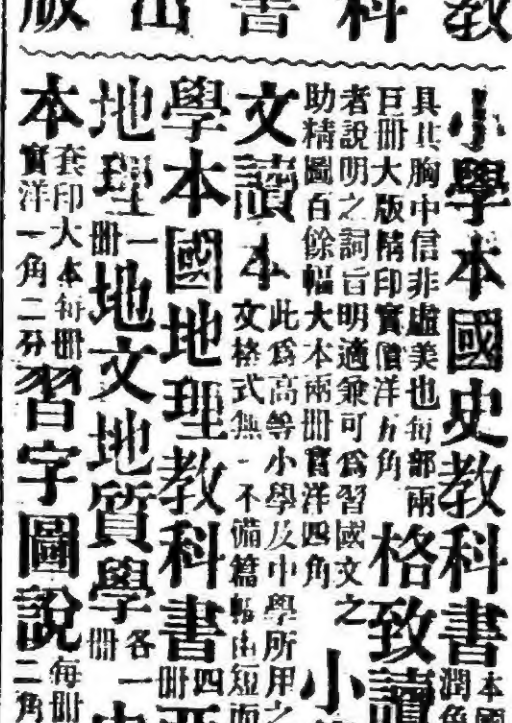 教科書出版
小學本國史教科書本國
潤角
具其胸中信非虛美也每部兩
巨冊大版精印實價洋五角
格致讀
者說明之詞旨明適兼可爲習國文之
助精圖百餘幅大本兩冊實洋四角
小
文讀本
此爲高等小學及中學所用之
文格式無一不備篇幅由短而
學本國地理教科書四
冊
地理一
冊
地文地質學各一
冊
本套印大本每冊
實洋一角二分
習字圖說每冊
二角